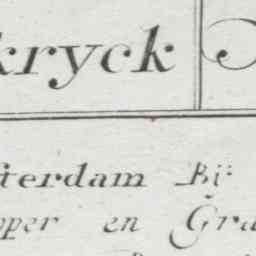 kryck
sterdam Bij
pper en Gra